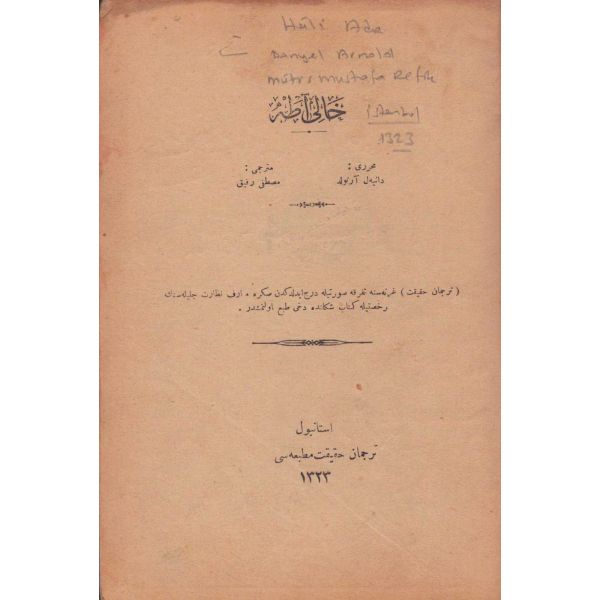 Hâli Ada
Danyel Arnold
mütr: mustafa Refik
خالی آطه
İstanbul
1323
محرری :
دانیه‌ل آرنولد
مترجمی :
مصطفی رفیق
( ترجمان حقیقت ) غزته‌سنه تفرقه صورتیله درج ایدلدکدن صکره معارف نظارت جلیله‌سنك
رخصتیله کتاب شکلنده دخی طبع اولنمشدر .
استانبول
ترجمان حقیقت مطبعه‌سی
١٣٢٣